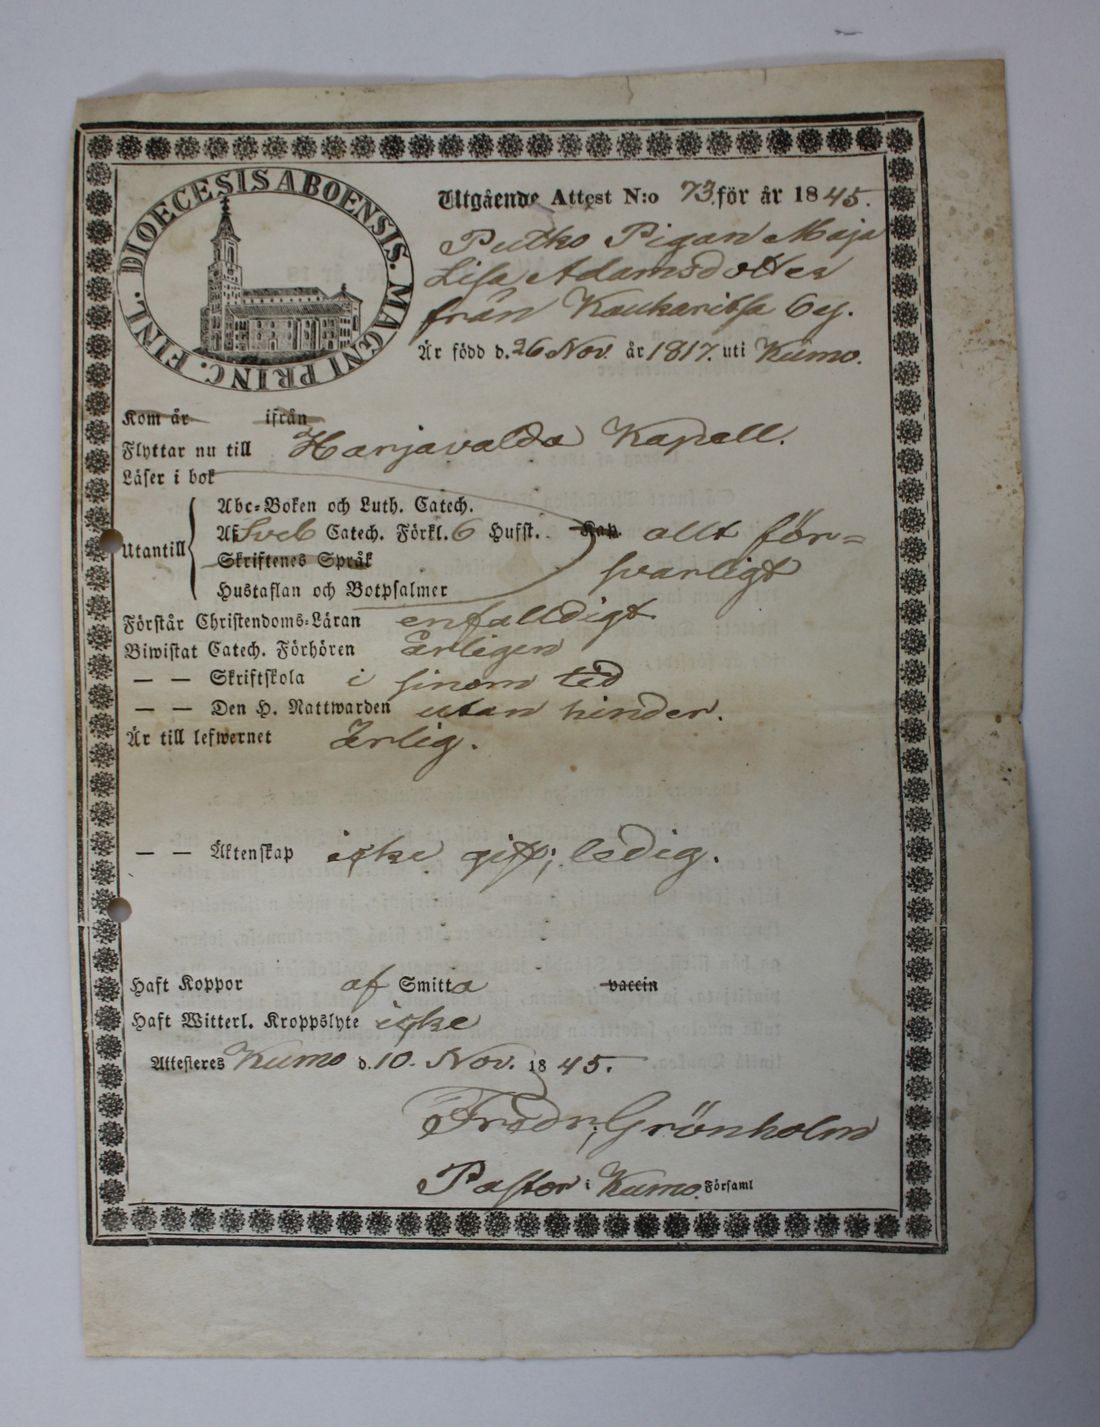 DIOECESIS ABOENSIS. MAGNI PRINC. FINL.
Utgående Attest N:o 73. för år 1845.
Putko Pigan Maja
Lisa Adamsdotter
från Kaukaritsa by.
Är född d. 26 Nov. år 1817. uti Kumo.
Kom år ifrån
Flyttar nu till Harjavalda Kapell.
Läser i bok
Utantill
Abc-Boken och Luth. Catech.
Af Sveb Catech. Förkl. 6 Hufst. Kap. allt för=
Skriftenes Språk svarligt
Hustaflan och Botpsalmer
Förstår Christendoms-Läran enfalldigt
Biwistat Catech. Förhören Ärligen
— — Skriftskola i sinom tid
— — Den H. Nattwarden utan hinder.
Är till lefwernet Ärlig.
— — Äktenskap icke gift; ledig.
Haft Koppor af Smitta vaccin
Haft Witterl. Kroppslyte icke
Attesteres Kumo d. 10. Nov. 1845.
Fredr. Grönholm
Pastor i Kumo Församl